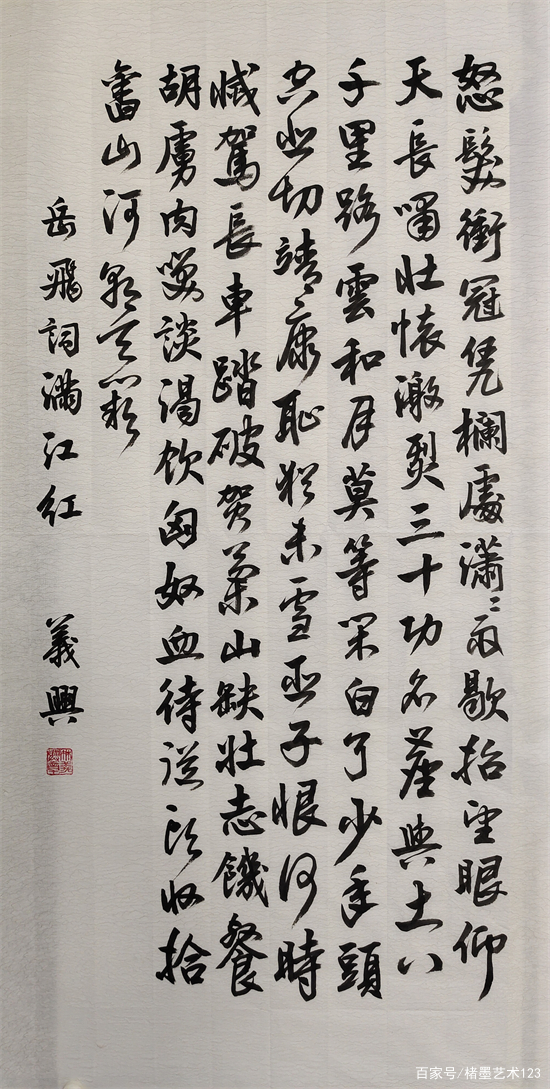 怒髮衝冠凭欄處瀟〻雨歇抬望眼仰
天長嘯壯懷激烈三十功名塵與土八
千里路雲和月莫等閑白了少年頭
空悲切靖康恥猶未雪臣子恨何時
滅駕長車踏破賀蘭山缺壯志饑餐
胡虜肉笑談渴飲匈奴血待從頭收拾
舊山河朝天闕
岳飛詞滿江紅 義興
百家号/楮墨艺术123